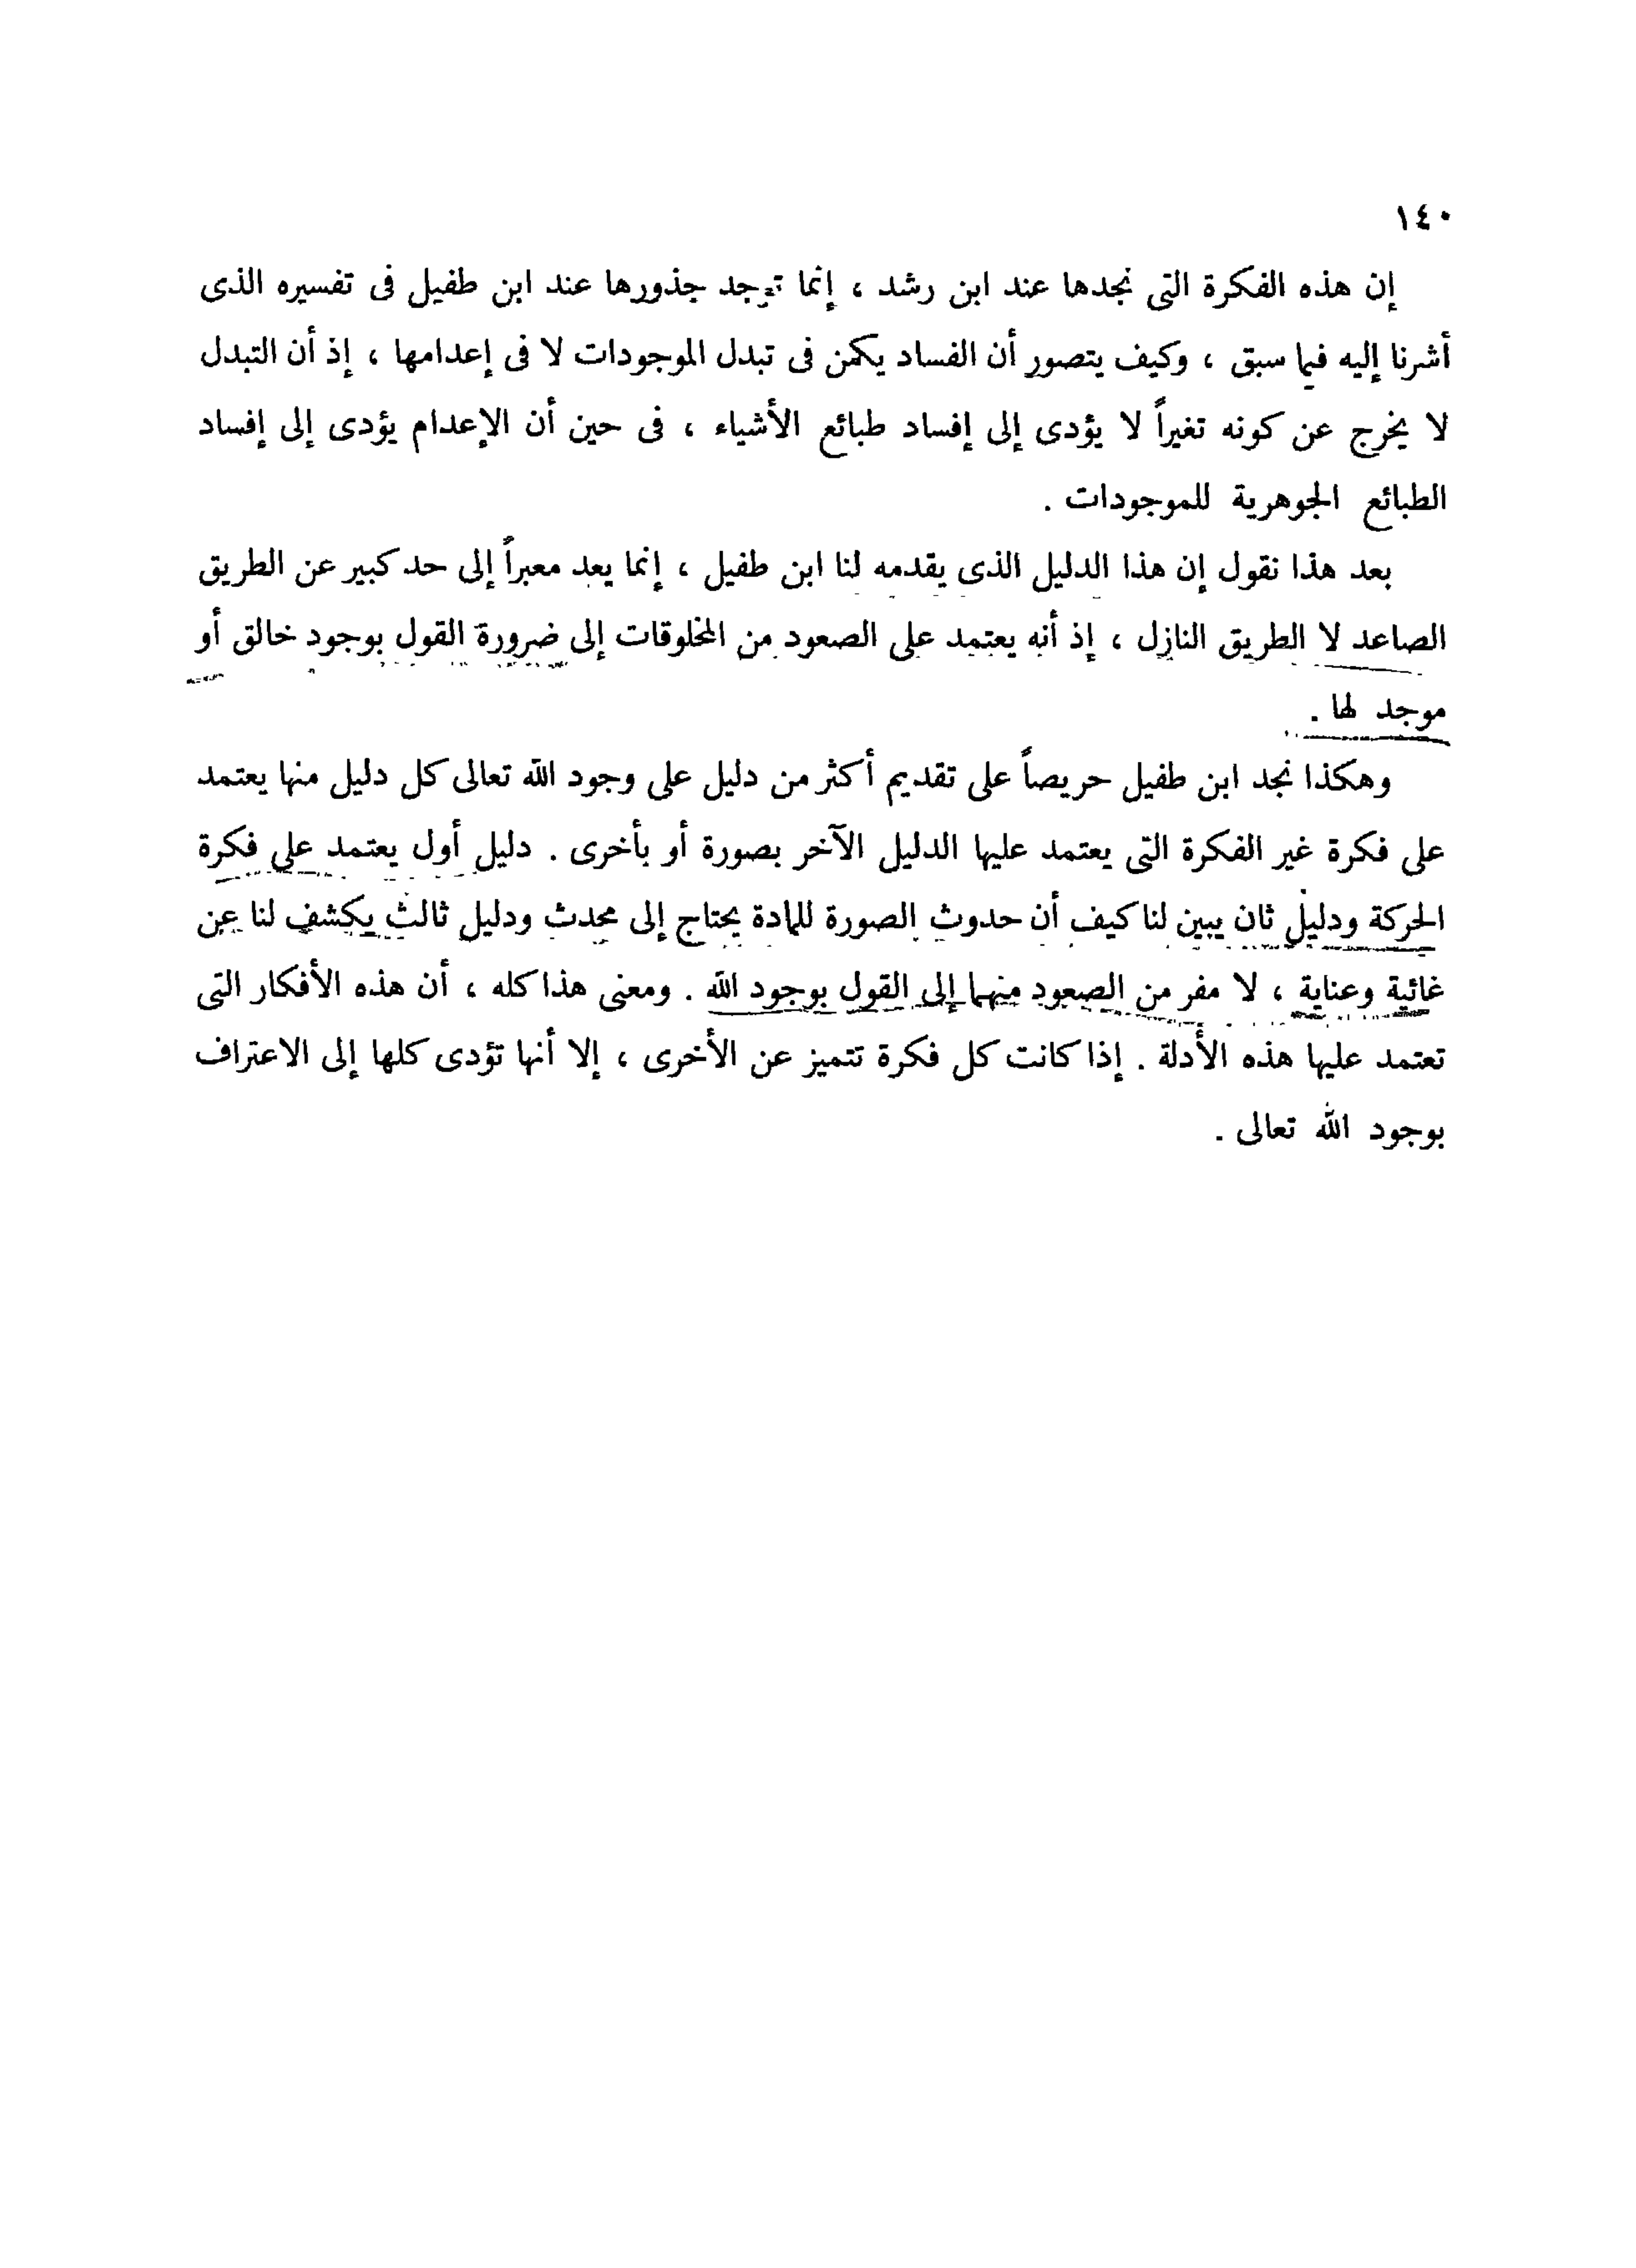 ١٤٠
إن هذه الفكرة التى نجدها عند ابن رشد ، إنما توجد جذورها عند ابن طفيل فى تفسيره الذى
أشرنا إليه فيما سبق ، وكيف يتصور أن الفساد يكمن فى تبدل الموجودات لا فى إعدامها ، إذ أن التبدل
لا يخرج عن كونه تغيراً لا يؤدى إلى إفساد طبائع الأشياء ، فى حين أن الإعدام يؤدى إلى إفساد
الطبائع الجوهرية للموجودات .
بعد هذا نقول إن هذا الدليل الذى يقدمه لنا ابن طفيل ، إنما يعد معبراً إلى حد كبير عن الطريق
الصاعد لا الطريق النازل ، إذ أنه يعتمد على الصعود من المخلوقات إلى ضرورة القول بوجود خالق أو
موجد لها .
وهكذا نجد ابن طفيل حريصاً على تقديم أكثر من دليل على وجود الله تعالى كل دليل منها يعتمد
على فكرة غير الفكرة التى يعتمد عليها الدليل الآخر بصورة أو بأخرى . دليل أول يعتمد على فكرة
الحركة ودليل ثان يبين لنا كيف أن حدوث الصورة للمادة يحتاج إلى محدث ودليل ثالث يكشف لنا عن
غائية وعناية ، لا مفر من الصعود منهما إلى القول بوجود الله . ومعنى هذا كله ، أن هذه الأفكار التى
تعتمد عليها هذه الأدلة . إذا كانت كل فكرة تتميز عن الأخرى ، إلا أنها تؤدى كلها إلى الاعتراف
بوجود الله تعالى .